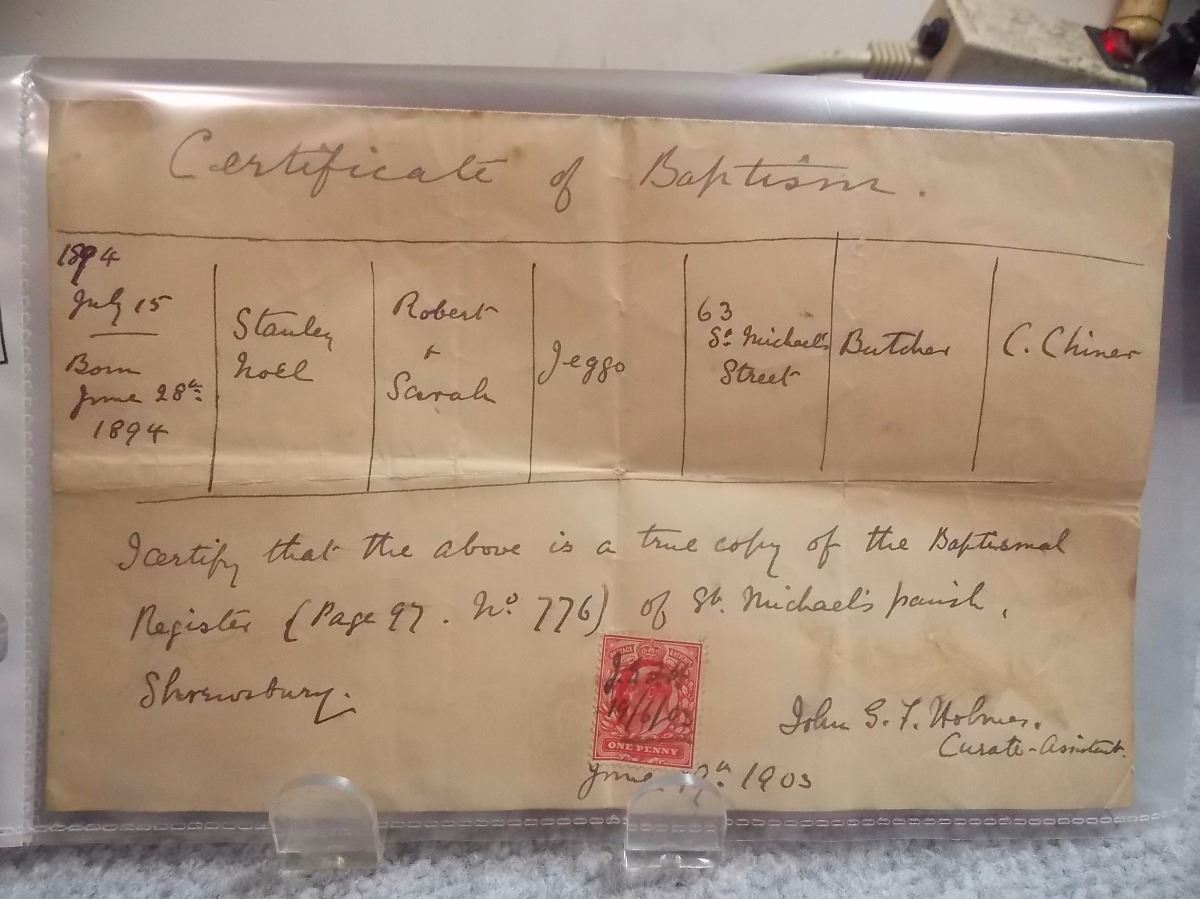 Certificate of Baptism.
1894
July 15
Born
June 28th
1894
Stanley
Noël
Robert
+
Sarah
Jeggo
63
St Michael's
Street
Butcher
C. Chiner
I certify that the above is a true copy of the Baptismal
Register (Page 97. No 776) of St. Michael's parish,
Shrewsbury.
POSTAGE
ONE PENNY
John G. T. Holmes.
Curate-Assistant.
June 1903